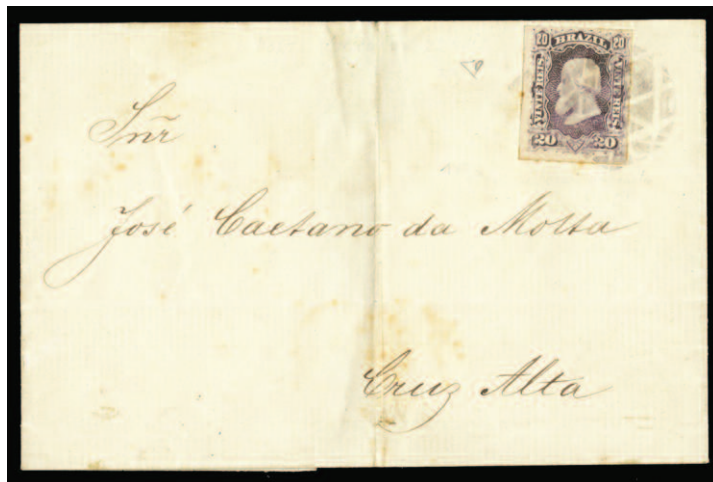 BRAZIL
20 20
VINTE REIS VINTE REIS
20 20
Snr̃
José Caetano da Motta
Cruz Alta